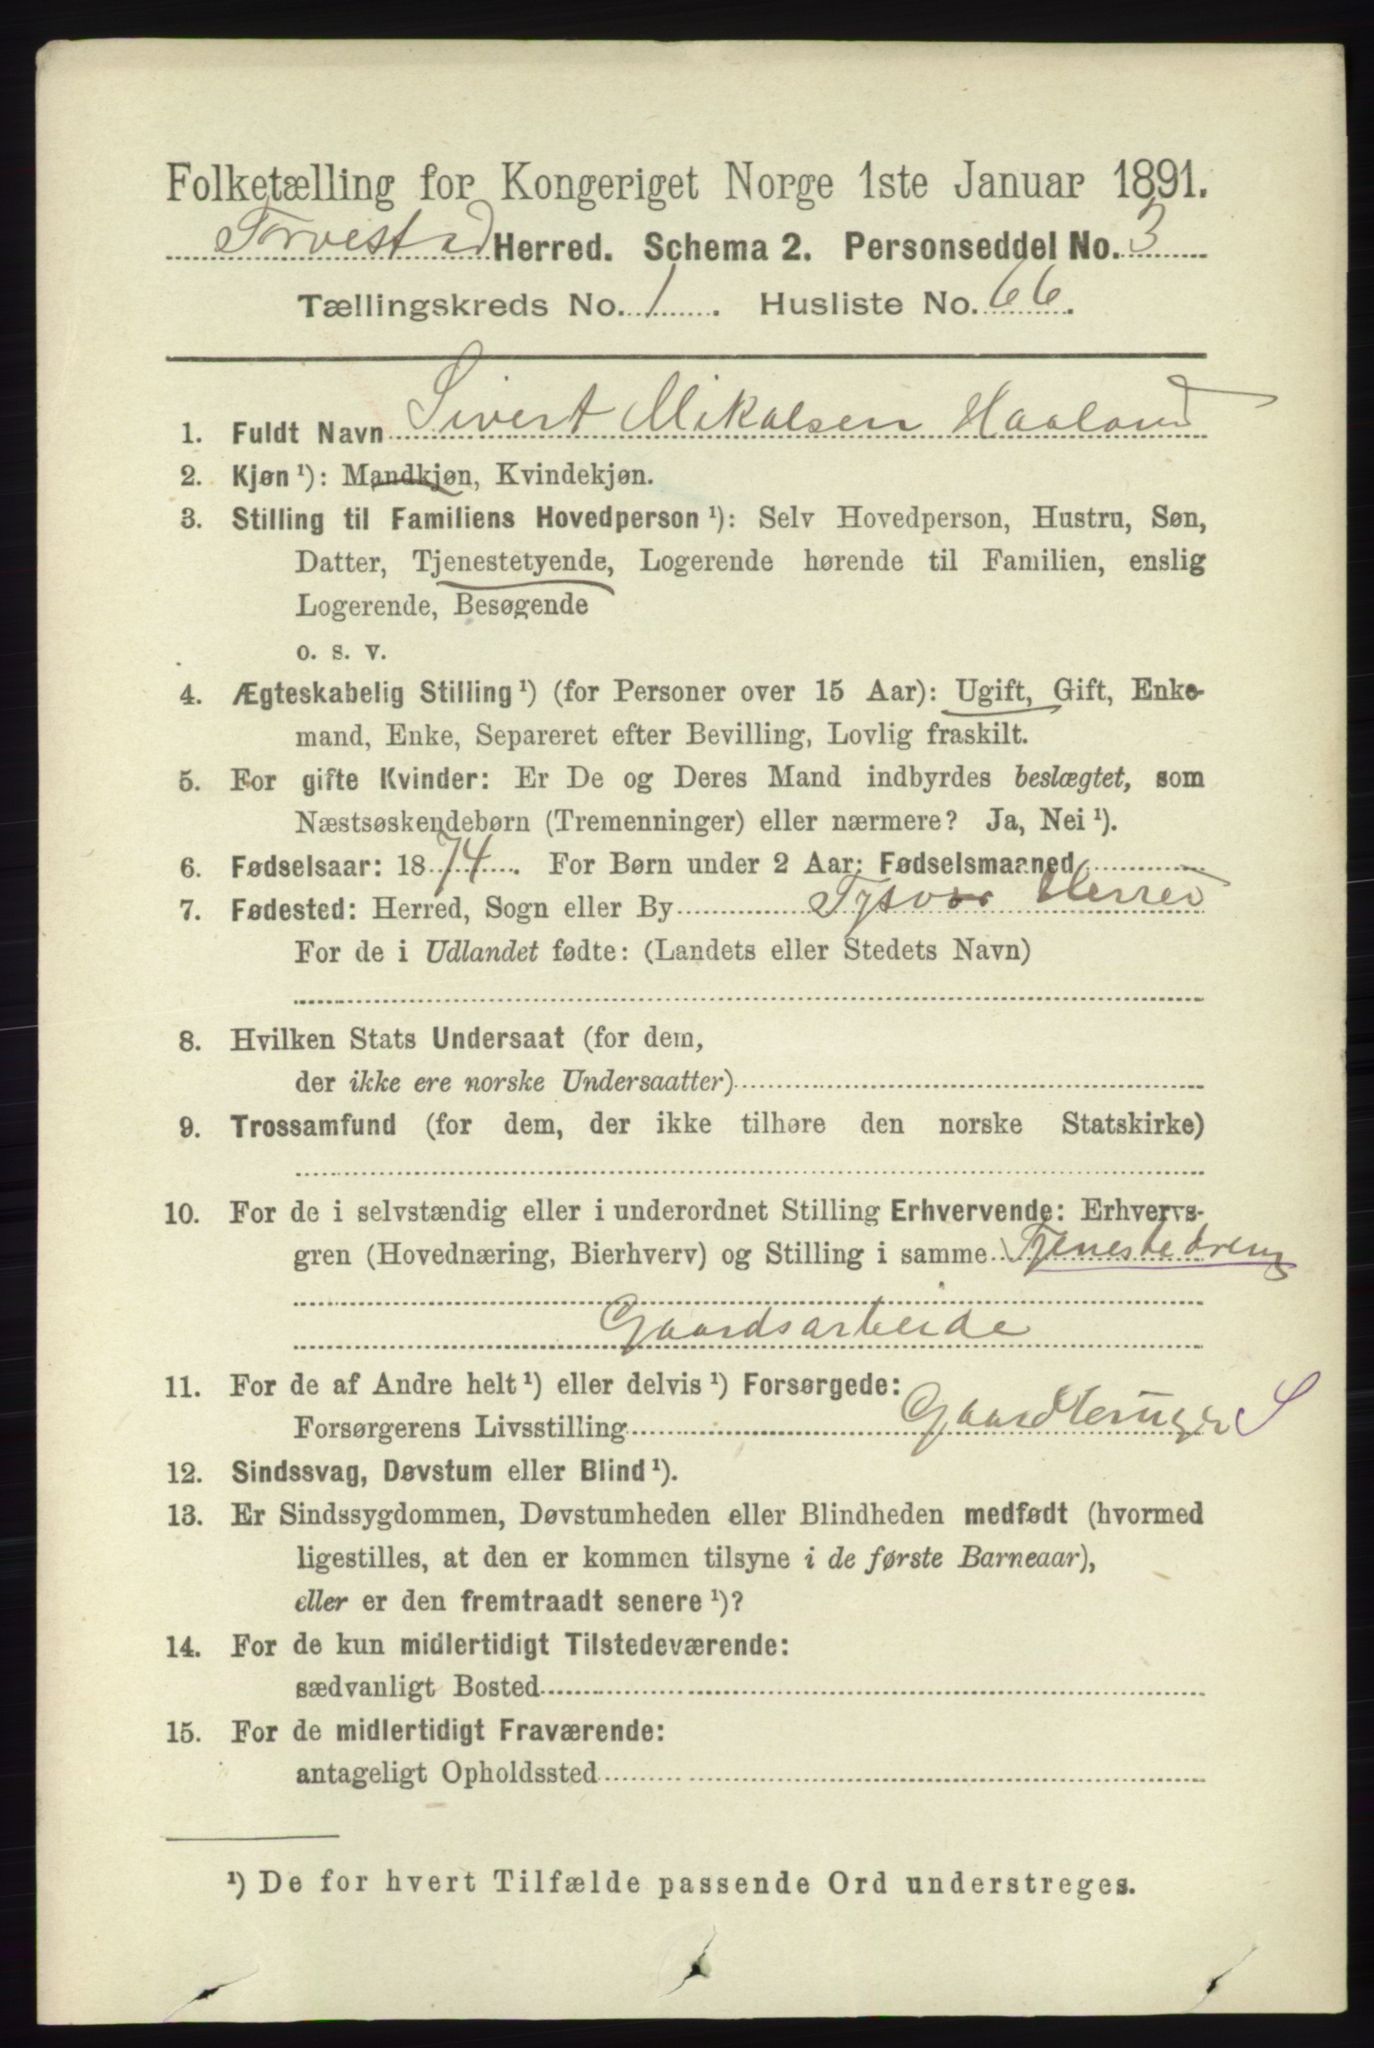 Folketælling for Kongeriget Norge 1ste Januar 1891.
Torvestad Herred. Schema 2. Personseddel No. 3
Tællingskreds No. 1. Husliste No. 66.
1. Fuldt Navn Sivert Mikalsen Haaland
2. Kjøn¹): Mandkjøn, Kvindekjøn.
3. Stilling til Familiens Hovedperson¹): Selv Hovedperson, Hustru, Søn,
Datter, Tjenestetyende, Logerende hørende til Familien, enslig
Logerende, Besøgende
o. s. v.
4. Ægteskabelig Stilling¹) (for Personer over 15 Aar): Ugift, Gift, Enke-
mand, Enke, Separeret efter Bevilling, Lovlig fraskilt.
5. For gifte Kvinder: Er De og Deres Mand indbyrdes beslægtet, som
Næstsøskendebørn (Tremenninger) eller nærmere? Ja, Nei¹).
6. Fødselsaar: 1874. For Børn under 2 Aar: Fødselsmaaned
7. Fødested: Herred, Sogn eller By Tysvær Herred
For de i Udlandet fødte: (Landets eller Stedets Navn)
8. Hvilken Stats Undersaat (for dem,
der ikke ere norske Undersaatter)
9. Trossamfund (for dem, der ikke tilhøre den norske Statskirke)
10. For de i selvstændig eller i underordnet Stilling Erhvervende: Erhvervs-
gren (Hovednæring, Bierhverv) og Stilling i samme Tjenestedreng
Gaardsarbeide
11. For de af Andre helt¹) eller delvis¹) Forsørgede:
Forsørgerens Livsstilling Gaardbruger S
12. Sindssvag, Døvstum eller Blind¹).
13. Er Sindssygdommen, Døvstumheden eller Blindheden medfødt (hvormed
ligestilles, at den er kommen tilsyne i de første Barneaar),
eller er den fremtraadt senere¹)?
14. For de kun midlertidigt Tilstedeværende:
sædvanligt Bosted
15. For de midlertidigt Fraværende:
antageligt Opholdssted
¹) De for hvert Tilfælde passende Ord understreges.